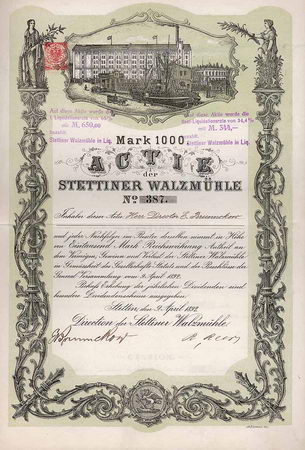 Auf diese Aktie wurde die
I. Liquidationsrate von 65%
mit M. 650,00
bezahlt.
Stettiner Walzmühle in Liq.
Auf diese Aktie wurde die
von 34,4%
mit M. 344,—
bezahlt.
Stettiner Walzmühle in Liq.
Mark 1000
ACTIE
der
STETTINER WALZMÜHLE
No 387.
Inhaber dieser Actie Herr Director E.
und jeder Nachfolger im Besitze derselben nimmt in Höhe
von Eintausend Mark Reichswährung Antheil an
dem Vermögen, Gewinn und Verlust der Stettiner Walzmühle
in Gemässheit des Gesellschafts-Statuts und der Beschlüsse der
General-Versammlung vom 9. April 1892.
Behufs Erhebung der jährlichen Dividenden sind
besondere Dividendenscheine ausgegeben.
Stettin, den 9. April 1892.
Direction der Stettiner Walzmühle.